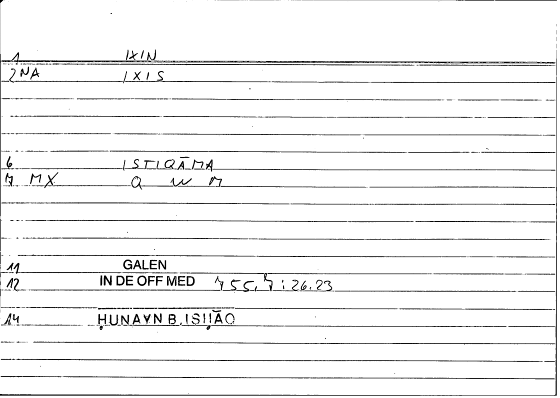 1 IXIN
2NA IXIS
6 ISTIQĀMA
7 MX Q W M
11 GALEN
12 IN DE OFF MED 755,7:26.23
14 ḤUNAYN B.ISḤĀQ